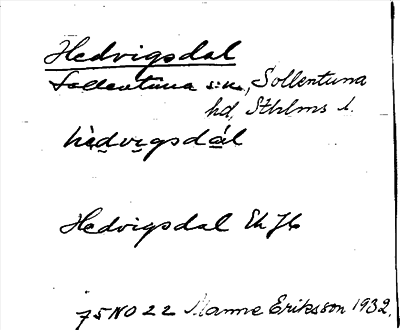 Hedvigsdal
Sollentuna sn, Sollentuna
hd, Sthlms l.
hèdvigsdál
Hedvigsdal Ek
75 NO 22 Manne Eriksson 1932.